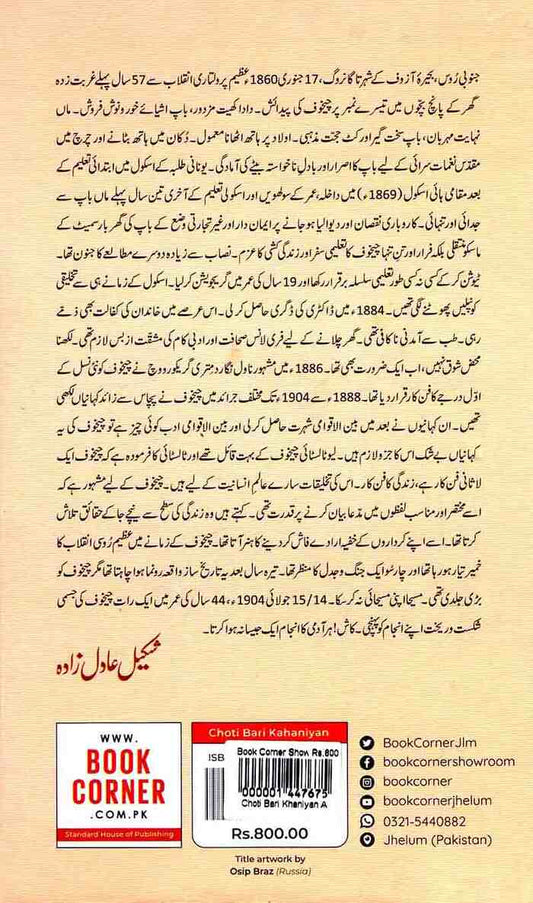 جنوبی رُوس، بحیرۂ آزوف کے شہر تاگانروگ، 17 جنوری 1860ء عظیم پرولتاری انقلاب سے 57 سال پہلے غربت زدہ
گھر کے پانچ بچوں میں تیسرے نمبر پر چیخوف کی پیدائش۔ دادا کھیت مزدور، باپ اشیائے خورونوش فروش۔ ماں
نہایت مہربان، باپ سخت گیر اور کٹ حجت مذہبی۔ اولاد پر ہاتھ اٹھانا معمول۔ دُکان میں ہاتھ بٹانے اور چرچ میں
مقدّس نغمات سرائی کے لیے باپ کا اصرار اور بادلِ ناخواستہ بیٹے کی آمادگی۔ یونانی طلبہ کے اسکول میں ابتدائی تعلیم کے
بعد مقامی ہائی اسکول (1869ء) میں داخلہ، عمر کے سولھویں اور اسکولی تعلیم کے آخری تین سال پہلے ماں باپ سے
جدائی اور تنہائی۔ کاروباری نقصان اور دیوالیا ہو جانے پر ایمان دار اور غیر تجارتی وضع کے باپ کی گھر بار سمیت کے
ماسکو منتقلی بلکہ فرار اور تنِ تنہا چیخوف کا تعلیمی سفر اور زندگی کشی کا عزم۔ نصاب سے زیادہ دوسرے مطالعے کا جنون تھا۔
ٹیوشن کر کے کسی نہ کسی طور تعلیمی سلسلہ برقرار رکھا اور 19 سال کی عمر میں گریجویشن کر لیا۔ اسکول کے زمانے ہی سے تخلیقی
کونپلیں پھوٹنے لگی تھیں۔ 1884ء میں ڈاکٹری کی ڈگری حاصل کر لی۔ اس عرصے میں خاندان کی کفالت بھی ذمّے
رہی۔ طب سے آمدنی ناکافی تھی۔ گھر چلانے کے لیے فری لانس صحافت اور ادبی کام کی مشقّت از بس لازم تھی۔ لکھنا
محض شوق نہیں، اب ایک ضرورت بھی تھا۔ 1886ء میں مشہور ناول نگار دمتری گریگورووچ نے چیخوف کو نئی نسل کے
اوّل درجے کا فن کار قرار دیا تھا۔ 1888ء سے 1904ء تک مختلف جرائد میں چیخوف نے پچاس سے زائد کہانیاں لکھی
تھیں۔ ان کہانیوں نے بعد میں بین الاقوامی شہرت حاصل کر لی اور بین الاقوامی ادب کوئی چیز ہے تو چیخوف کی یہ
کہانیاں بے شک اس کا جزوِ لازم ہیں۔ لیو ٹالسٹائی چیخوف کے بہت قائل تھے اور ٹالسٹائی کا فرمودہ ہے کہ چیخوف ایک
لاثانی فن کار ہے، زندگی کا فن کار۔ اس کی تخلیقات سارے عالمِ انسانیت کے لیے ہیں۔ چیخوف کے لیے مشہور ہے کہ
اسے مختصر اور مناسب لفظوں میں مدّعا بیان کرنے پر قدرت تھی۔ کہتے ہیں وہ زندگی کی سطح سے نیچے جا کے حقائق تلاش
کرتا تھا۔ اسے اپنے کرداروں کے خفیہ ارادے فاش کر دینے کا ہنر آتا تھا۔ چیخوف کے زمانے میں عظیم رُوسی انقلاب کا
خمیر تیار ہو رہا تھا اور چار سُو ایک جنگ و جدل کا منظر تھا۔ تیرہ سال بعد یہ تاریخ ساز واقعہ رونما ہوا چاہتا تھا مگر چیخوف کو
بڑی جلدی تھی۔ مسیحا اپنی مسیحائی نہ کر سکا۔ 15/14 جولائی 1904ء، 44 سال کی عمر میں ایک رات چیخوف کی جسمی
شکست و ریخت اپنے انجام کو پہنچی۔ کاش! ہر آدمی کا انجام ایک جیسا نہ ہوا کرتا۔
شکیل عادل زادہ
WWW.
BOOK
CORNER
.COM.PK
Standard House of Publishing
Choti Bari Kahaniyan
ISB
Book Corner Show Rs.800
000001 447675
Choti Bari Khaniyan A
Rs.800.00
BookCornerJlm
bookcornershowroom
bookcorner
bookcornerjhelum
0321-5440882
Jhelum (Pakistan)
Title artwork by
Osip Braz (Russia)